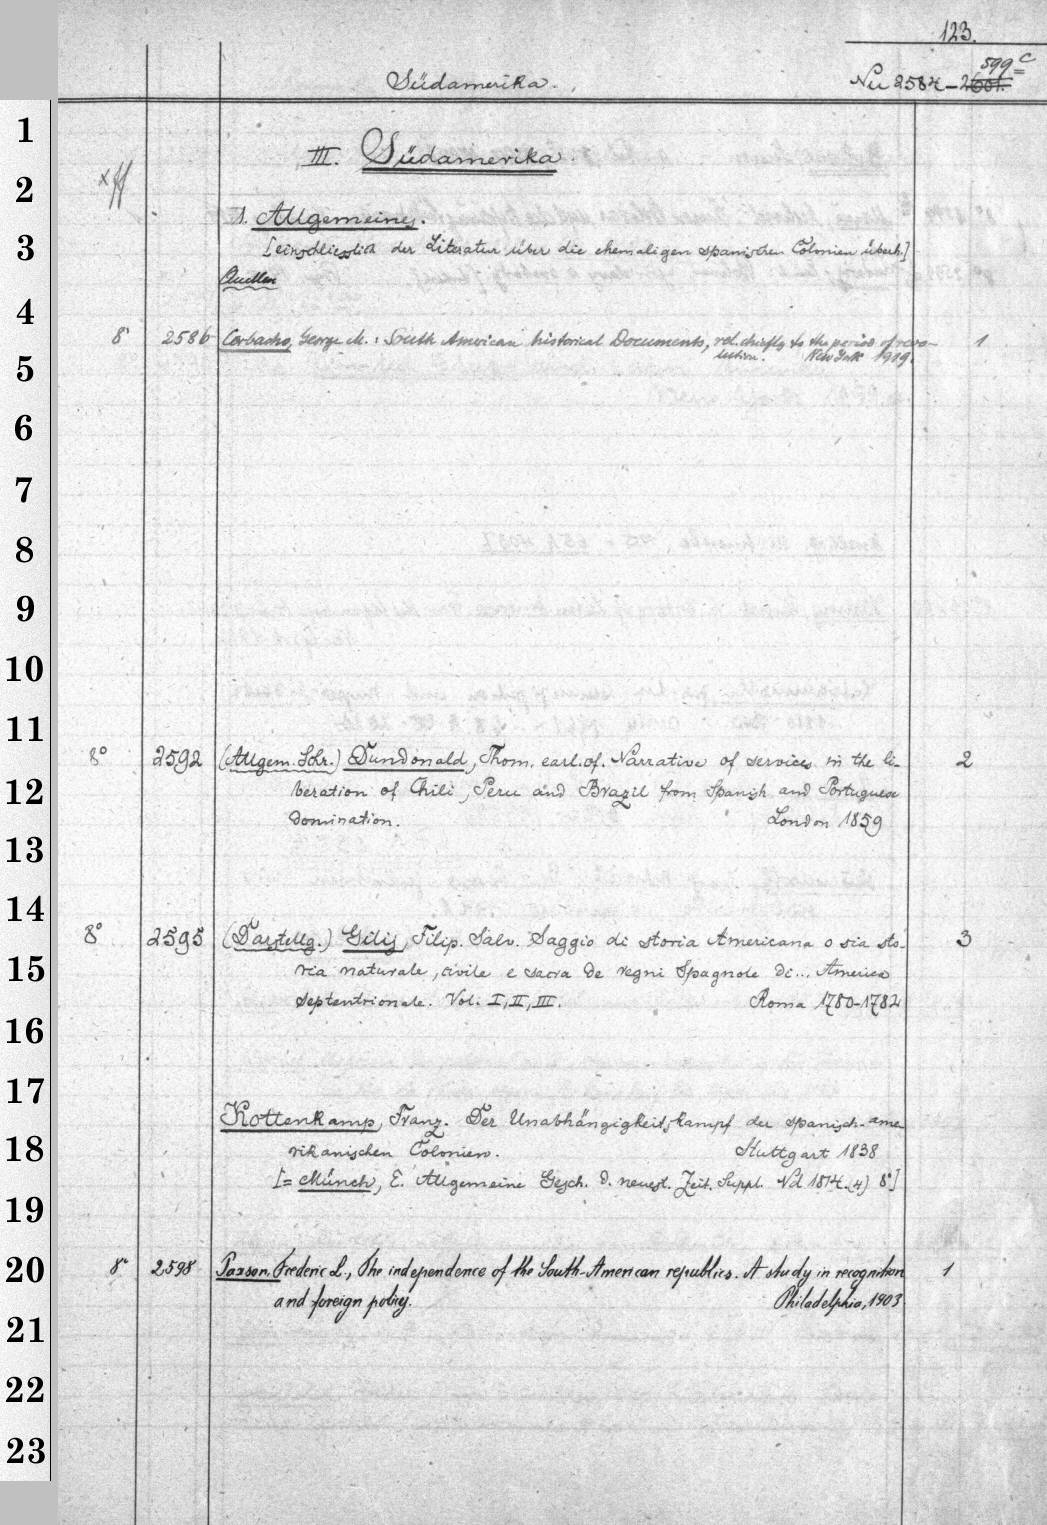 123.
Südamerika.
Nu 2584-2601. 599c
III. Südamerika.
1. Allgemeines.
[einschliesslich der Literatur über die ehemaligen spanischen Colonien überh.]
Quellen
8° 2586 Corbacho, George M.: South American historical Documents, rel. chiefly to the period of revo- 1
lution. New York 1919.
8° 2592 (Allgem. Schr.) Dundonald, Thom. earl. of. Narrative of services in the li- 2
beration of Chili, Peru and Brazil from Spanish and Portuguese
domination. London 1859
8° 2595 (Darstellg.) Gilij, Filip. Salv. Saggio di storia Americana o sia sto- 3
ria naturale, civile e sacra de regni Spagnole di... America
septentrionale. Vol. I, II, III. Roma 1780-1782
Kottenkamp, Franz. Der Unabhängigkeitskampf der spanisch-ame
rikanischen Colonien. Stuttgart 1838
[= Münch, E. Allgemeine Gesch. d. neuest. Zeit. Suppl. Nd 1874. (4) 8°]
8° 2598 Paxson, Frederic L., The independence of the South-American republics. A study in recognition 1
and foreign policy. Philadelphia, 1903
1
2
3
4
5
6
7
8
9
10
11
12
13
14
15
16
17
18
19
20
21
22
23